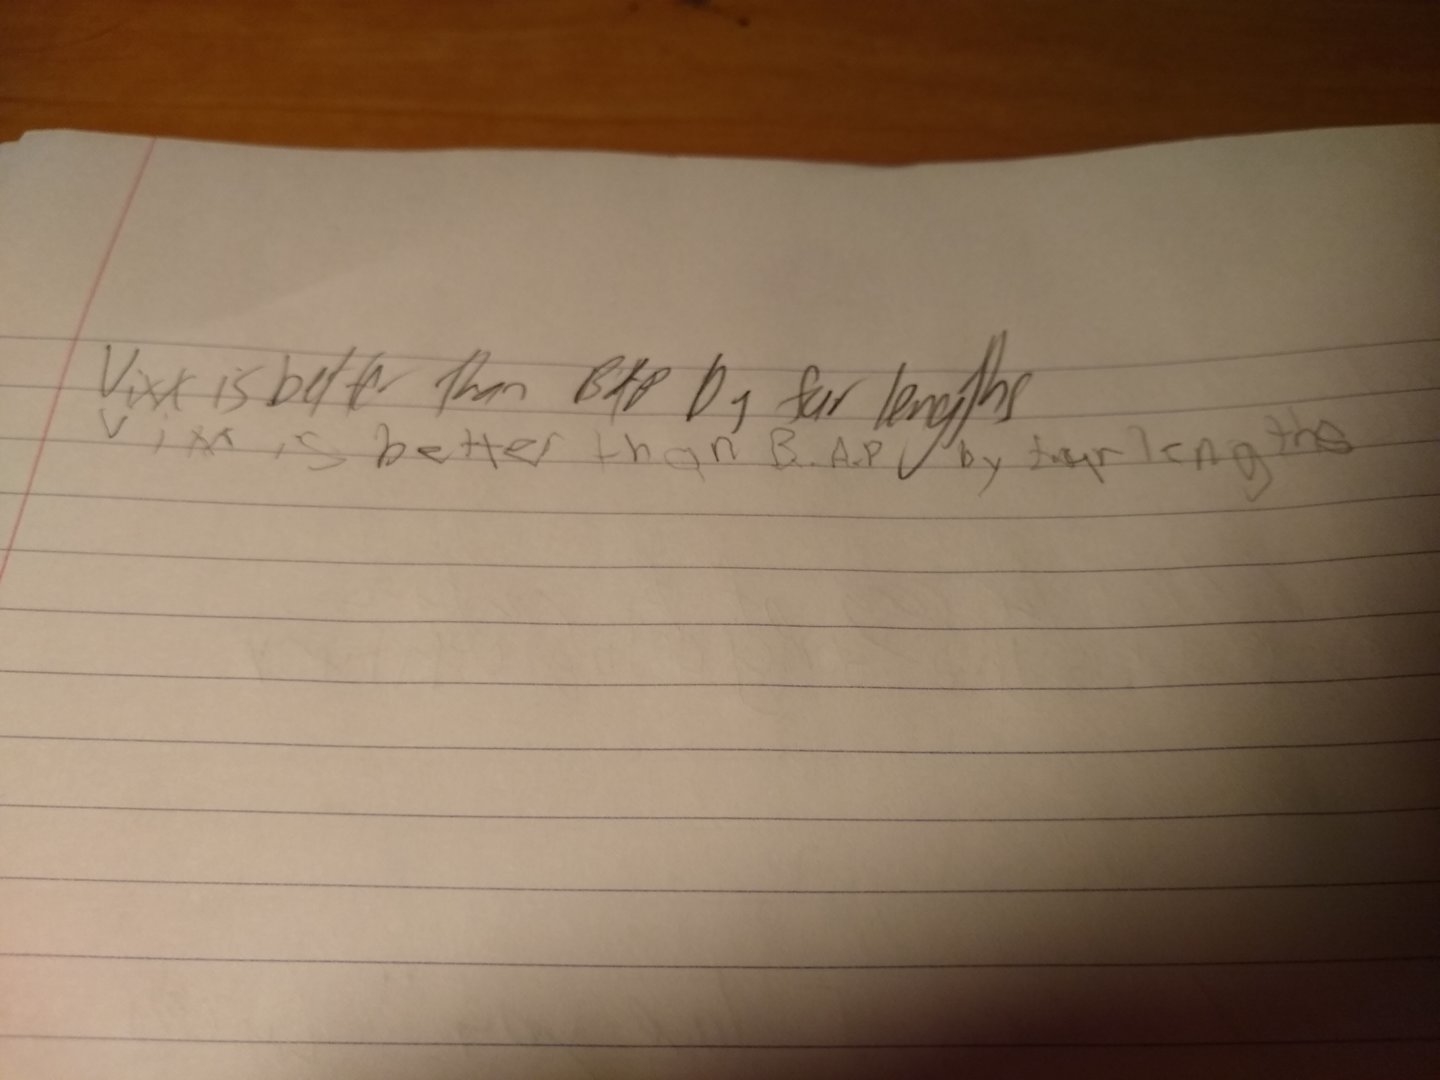 Vixx is better than BAP by far lengths
Vixx is better than B.A.P by far lengths